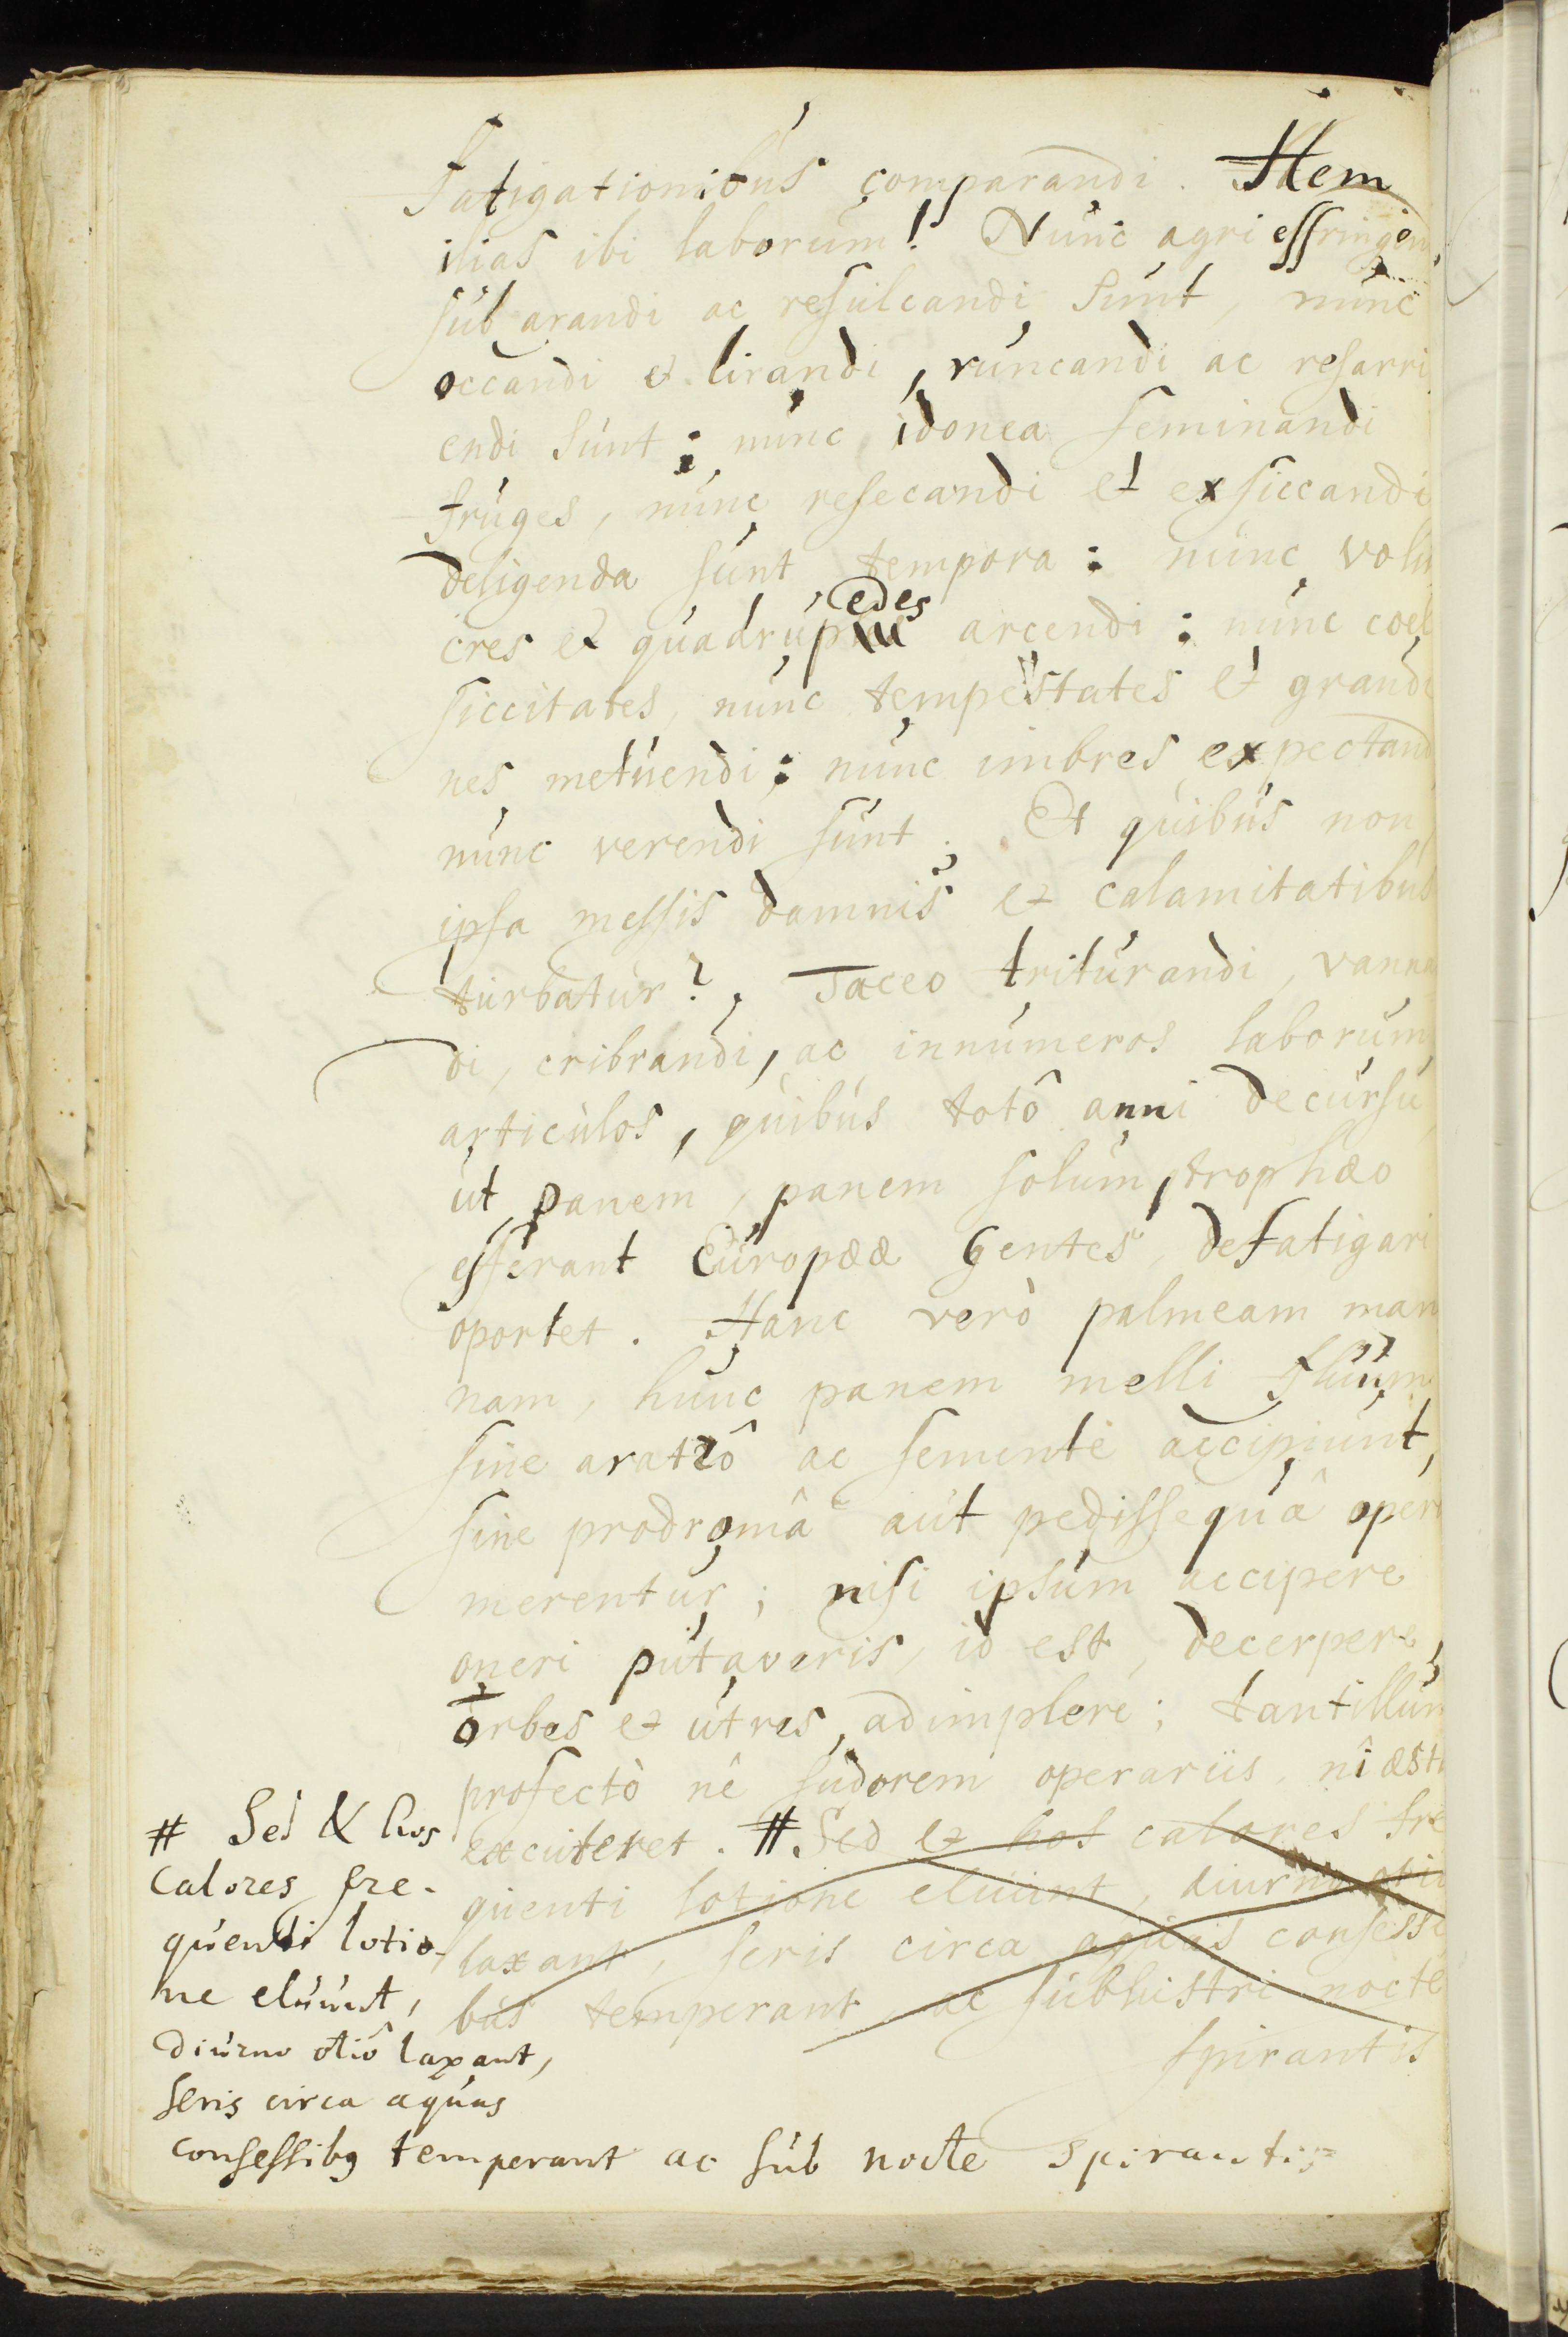 fatigationibus comparandi. Hem
ilias ibi laborum! Nunc agri effringen
sub arandi ac resulcandi sunt, nunc
occandi et lirandi, runcandi ac resarri
endi sunt; nunc idonea seminandi
fruges, nunc resecandi et exsiccandi
deligenda sunt tempora: nunc volu
cres et quadrupedes arcendi: nunc coel
siccitates, nunc tempestates et grandi
nes metuendi; nunc imbres expectand
nunc verendi sunt. Et quibus non
ipsa messis damnis et calamitatibus
turbatur? Taceo triturandi, vanna
di, cribrandi, ac innumeros laborum
articulos, quibus totô anni decursu
ut panem, panem solum, trophæo
efferant Europææ Gentes, defatigari
oportet. Hanc verò palmeam man
nam, hunc panem melli fluum
sine aratrô ac semente accipiunt,
sine prodromâ aut pedissequâ oper
merentur; nisi ipsum accipere
oneri putaveris, id est, decerpere,
orbes et utres adimplere; tantillum
profectò nê sudorem operariis, nî æstu
excuteret. # Sed et hos calores fre
quenti lotione eluunt, diurno oti
laxant, seris circa aquas consessi
bus temperant, ac sublustri nocte
spirantis
# Sed & hos
calores fre-
quenti lotio-
ne eluunt,
diurno otiô laxant,
seris circa aquas
consessibq temperant ac sub nocte spirantis